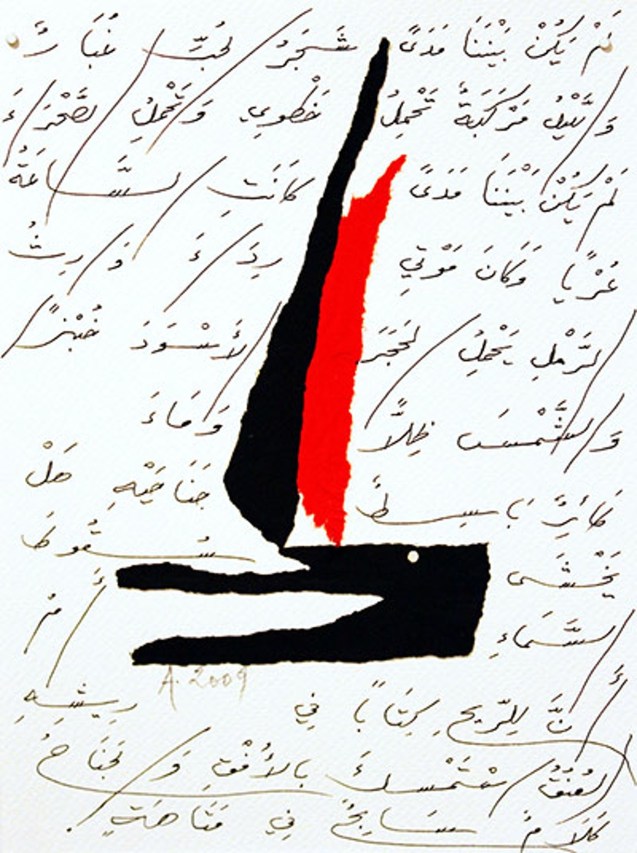 لَمْ يَكُنْ بَيْنَنَا مَدَىً شَجَرُ الحُبِّ غُبَارٌ
وَاللَّيْلُ مَرْكَبَةٌ تَحْمِلُ خَطْوِي وَتَحْمِلُ الصَّحْرَاءَ
لَمْ يَكُنْ بَيْنَنَا مَدَىً كَانَتِ السَّاعَةُ
عُرْيًا وَكَانَ مَوْتِي رِدَاءَ وَارِثُ
الرَّمْلِ يَحْمِلُ الحَجَرَ الأَسْوَدَ خُبْزًا
وَالشَّمْسَ ظِلَّاً وَمَاءَ
طَائِرٌ بَاسِطٌ جَنَاحَيْهِ هَلْ
يَخْشَى سُقُوطَ
السَّمَاءِ أَمْ
أَنَّ لِلرِّيحِ كِتَابًا فِي رِيشِهِ
العُنُقُ اسْتَمْسَكَ بِالأُفْقِ وَالجَنَاحُ
كَلَامٌ سَابِحٌ فِي مَتَاهَةٍ.
A. 2009